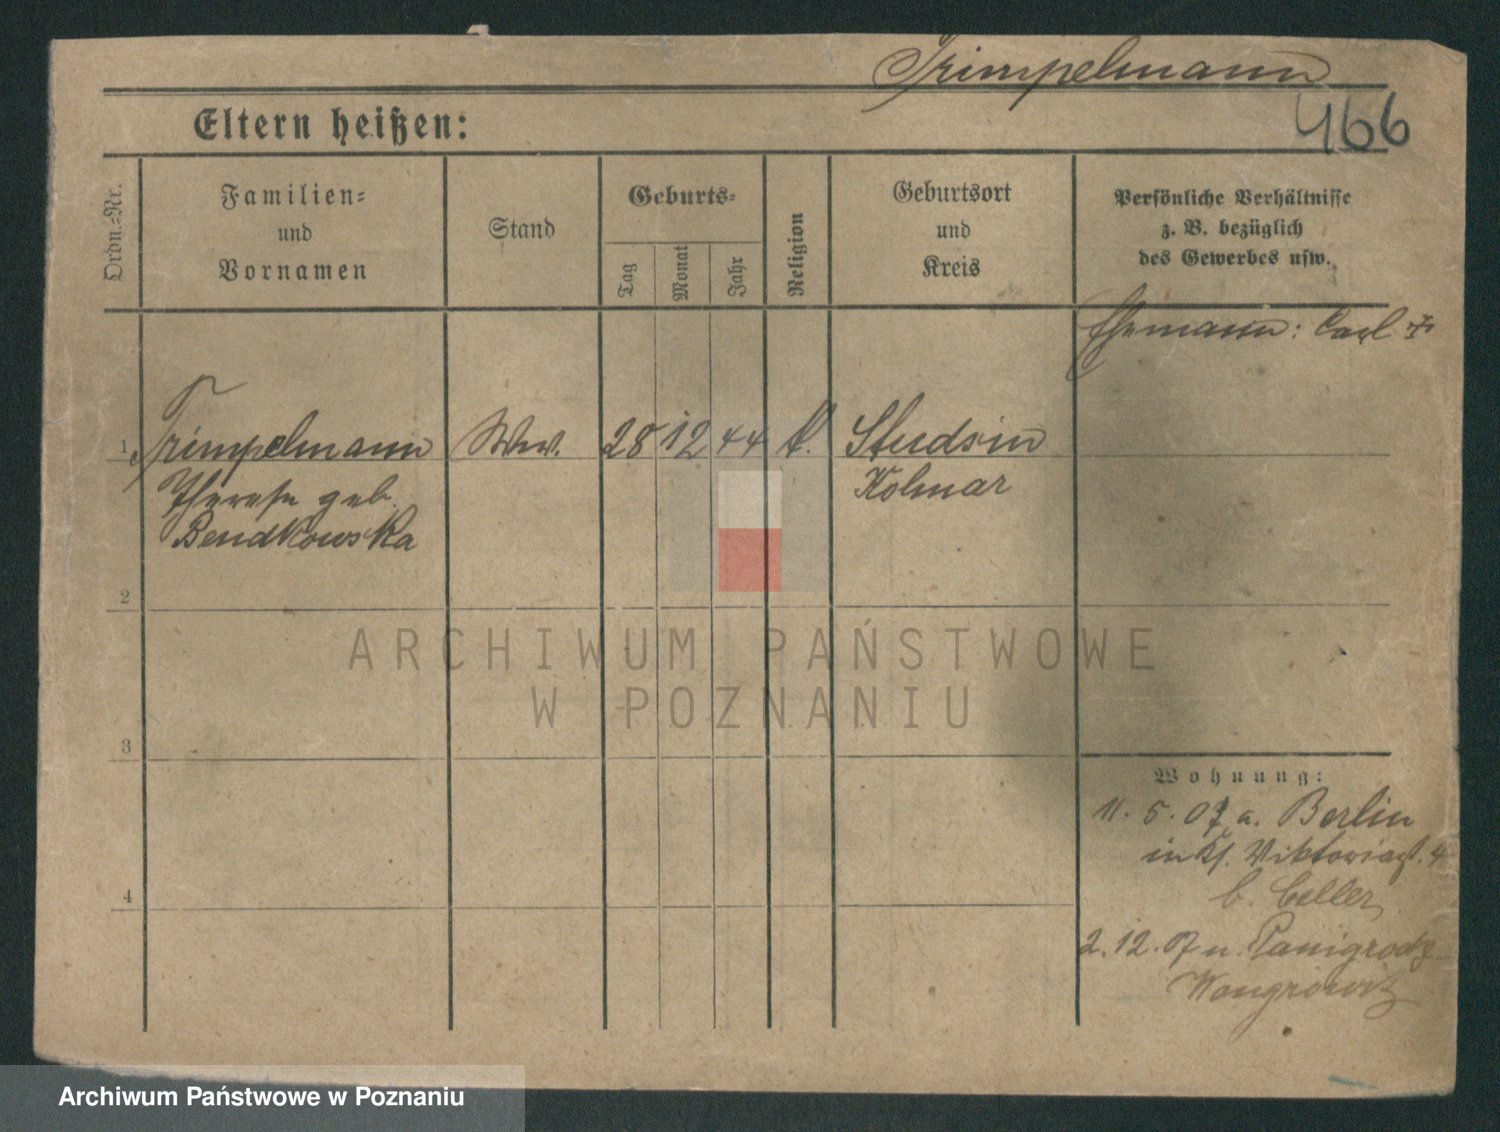 Trimpelmann
466
Eltern heißen:
Ordn.-Nr.
Familien-
und
Vornamen
Stand
Geburts-
Tag
Monat
Jahr
Religion
Geburtsort
und
Kreis
Persönliche Verhältnisse
z. B. bezüglich
des Gewerbes usw.
Ehemann: Carl +
1 Trimpelmann Ww. 28 12 44 k. Studsin
Therese geb. Kolmar
Bendkowska
2
ARCHIWUM PAŃSTWOWE
W POZNANIU
3
Wohnung:
11. 5. 07 a. Berlin
Viktoriast. 4
b. Celler
4
2. 12. 07 n. Panigrodz
Wongrowitz
Archiwum Państwowe w Poznaniu